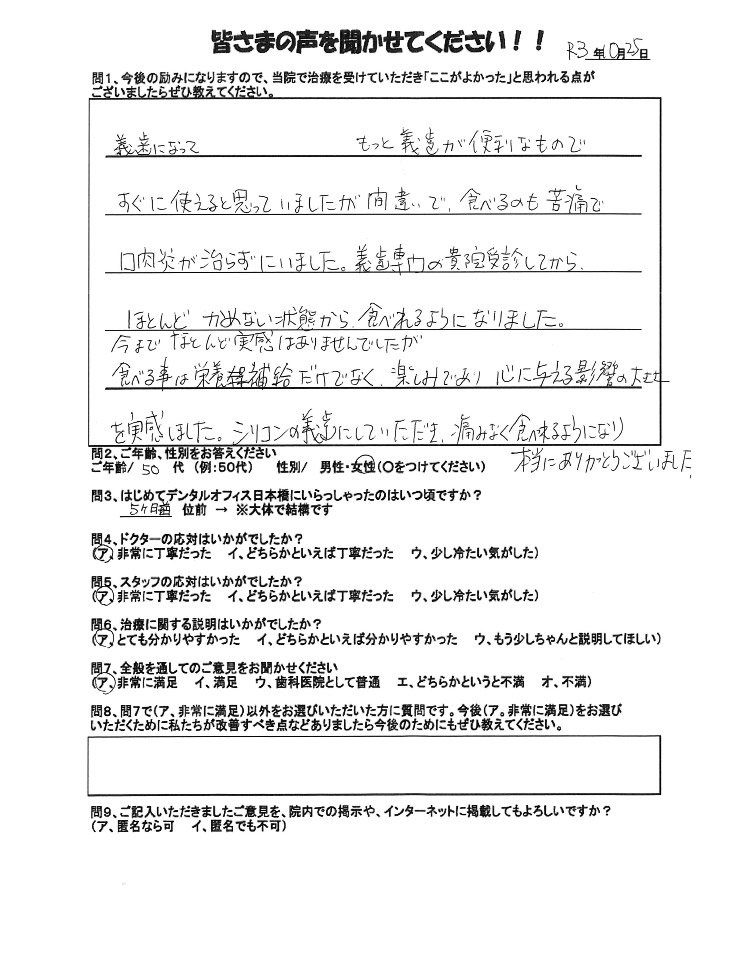 皆さまの声を聞かせてください！！ R3年10月25日
問1、今後の励みになりますので、当院で治療を受けていただき「ここがよかった」と思われる点が
ございましたらぜひ教えてください。
義歯になって もっと義歯が便利なもので
すぐに使えると思っていましたが間違いで、食べるのも苦痛で
口内炎が治らずにいました。義歯専門の貴院受診してから、
ほとんどかめない状態から、食べれるようになりました。
今までほとんど実感はありませんでしたが
食べる事は栄養補給だけでなく、楽しみであり心に与える影響の大せ
を実感しました。シリコンの義歯にしていただき、痛みなく食べれるようになり
本当にありがとうございました
問2、ご年齢、性別をお答えください
ご年齢/ 50 代 （例：50代） 性別/ 男性・女性（○をつけてください）
問3、はじめてデンタルオフィス日本橋にいらっしゃったのはいつ頃ですか？
5ヶ月前 位前 → ※大体で結構です
問4、ドクターの応対はいかがでしたか？
（ア、非常に丁寧だった イ、どちらかといえば丁寧だった ウ、少し冷たい気がした）
問5、スタッフの応対はいかがでしたか？
（ア、非常に丁寧だった イ、どちらかといえば丁寧だった ウ、少し冷たい気がした）
問6、治療に関する説明はいかがでしたか？
（ア、とても分かりやすかった イ、どちらかといえば分かりやすかった ウ、もう少しちゃんと説明してほしい）
問7、全般を通してのご意見をお聞かせください
（ア、非常に満足 イ、満足 ウ、歯科医院として普通 エ、どちらかというと不満 オ、不満）
問8、問7で（ア、非常に満足）以外をお選びいただいた方に質問です。今後（ア。非常に満足）をお選び
いただくために私たちが改善すべき点などありましたら今後のためにもぜひ教えてください。
問9、ご記入いただきましたご意見を、院内での掲示や、インターネットに掲載してもよろしいですか？
（ア、匿名なら可 イ、匿名でも不可）